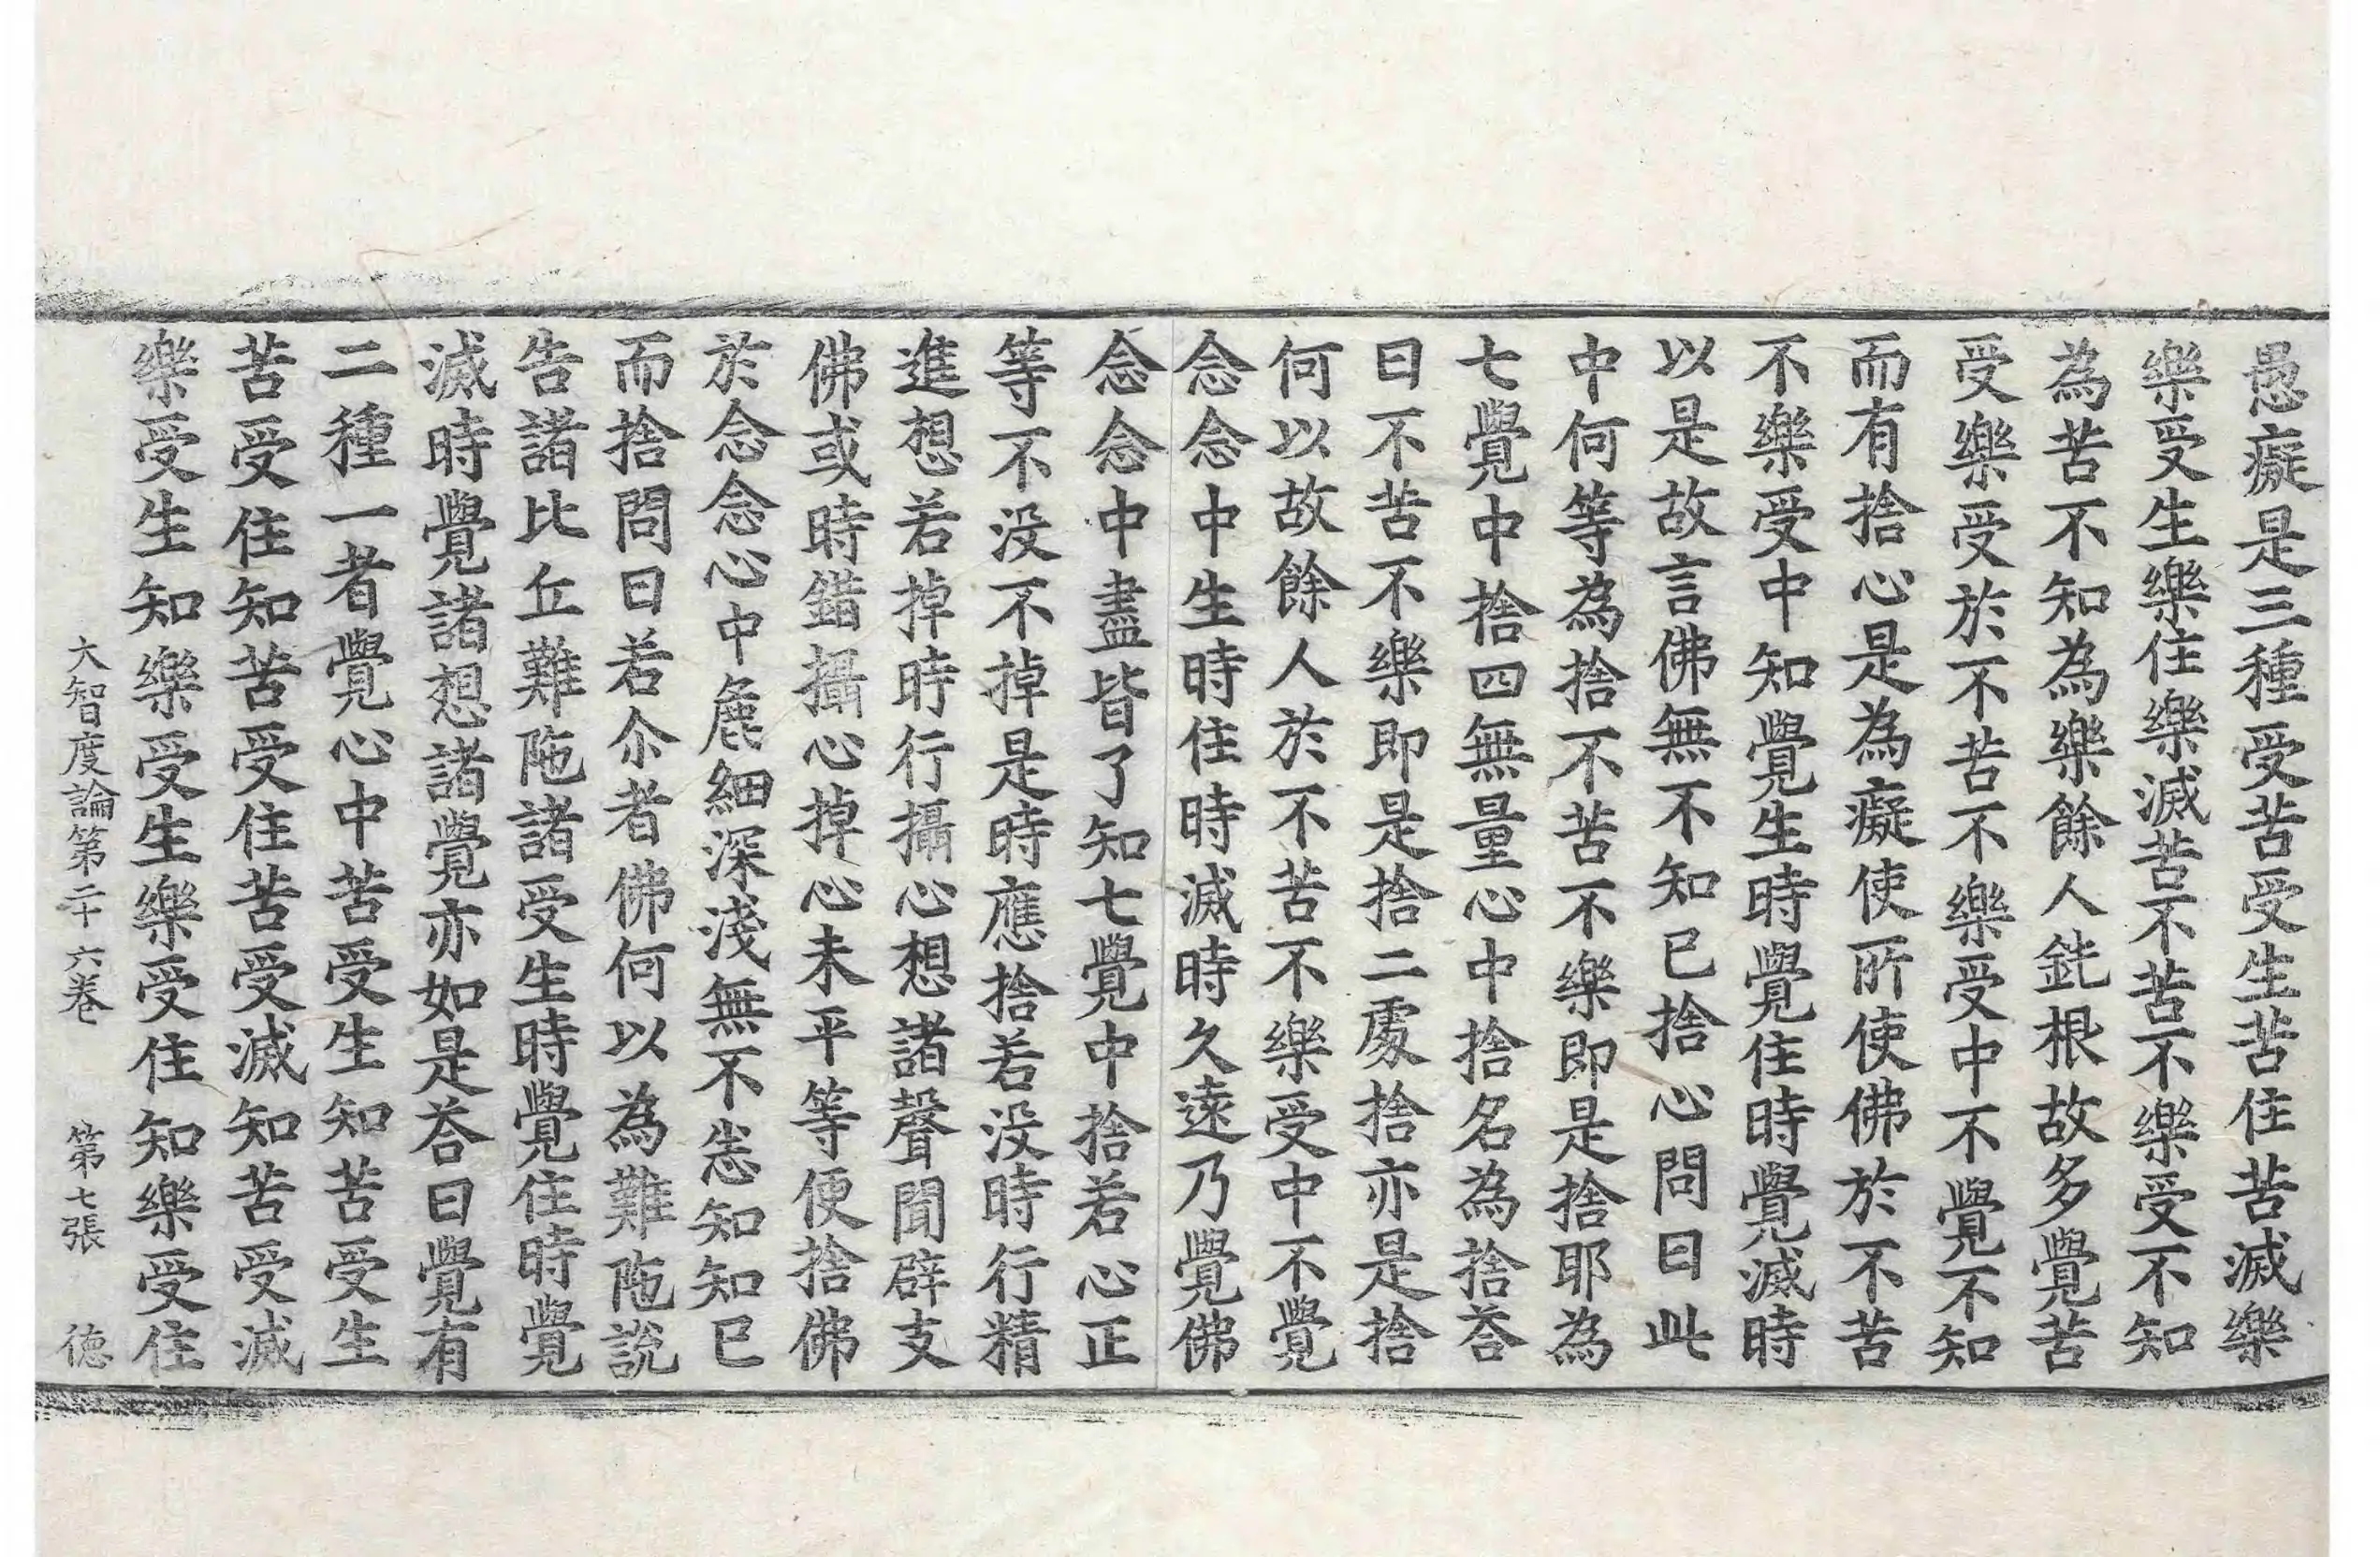 愚癡是三種受苦受生苦住苦滅樂
樂受生樂住樂滅苦不苦不樂受不知
為苦不知為樂餘人鈍根故多覺苦
受樂受於不苦不樂受中不覺不知
而有捨心是為癡使所使佛於不苦
不樂受中知覺生時覺住時覺滅時
以是故言佛無不知已捨心問曰此
中何等為捨不苦不樂即是捨耶為
七覺中捨四無量心中捨名為捨荅
曰不苦不樂即是捨二處捨亦是捨
何以故餘人於不苦不樂受中不覺
念念中生時住時滅時久遠乃覺佛
念念中盡皆了知七覺中捨若心正
等不没不掉是時應捨若没時行精
進想若掉時行攝心想諸聲聞辟支
佛或時錯攝心掉心未平等便捨佛
於念念心中麁細深淺無不悉知知已
而捨問曰若尒者佛何以為難陁說
告諸比丘難陁諸受生時覺住時覺
滅時覺諸想諸覺亦如是荅曰覺有
二種一者覺心中苦受生知苦受生
苦受住知苦受住苦受滅知苦受滅
樂受生知樂受生樂受住知樂受住
大智度論第二十六卷　第七張　德